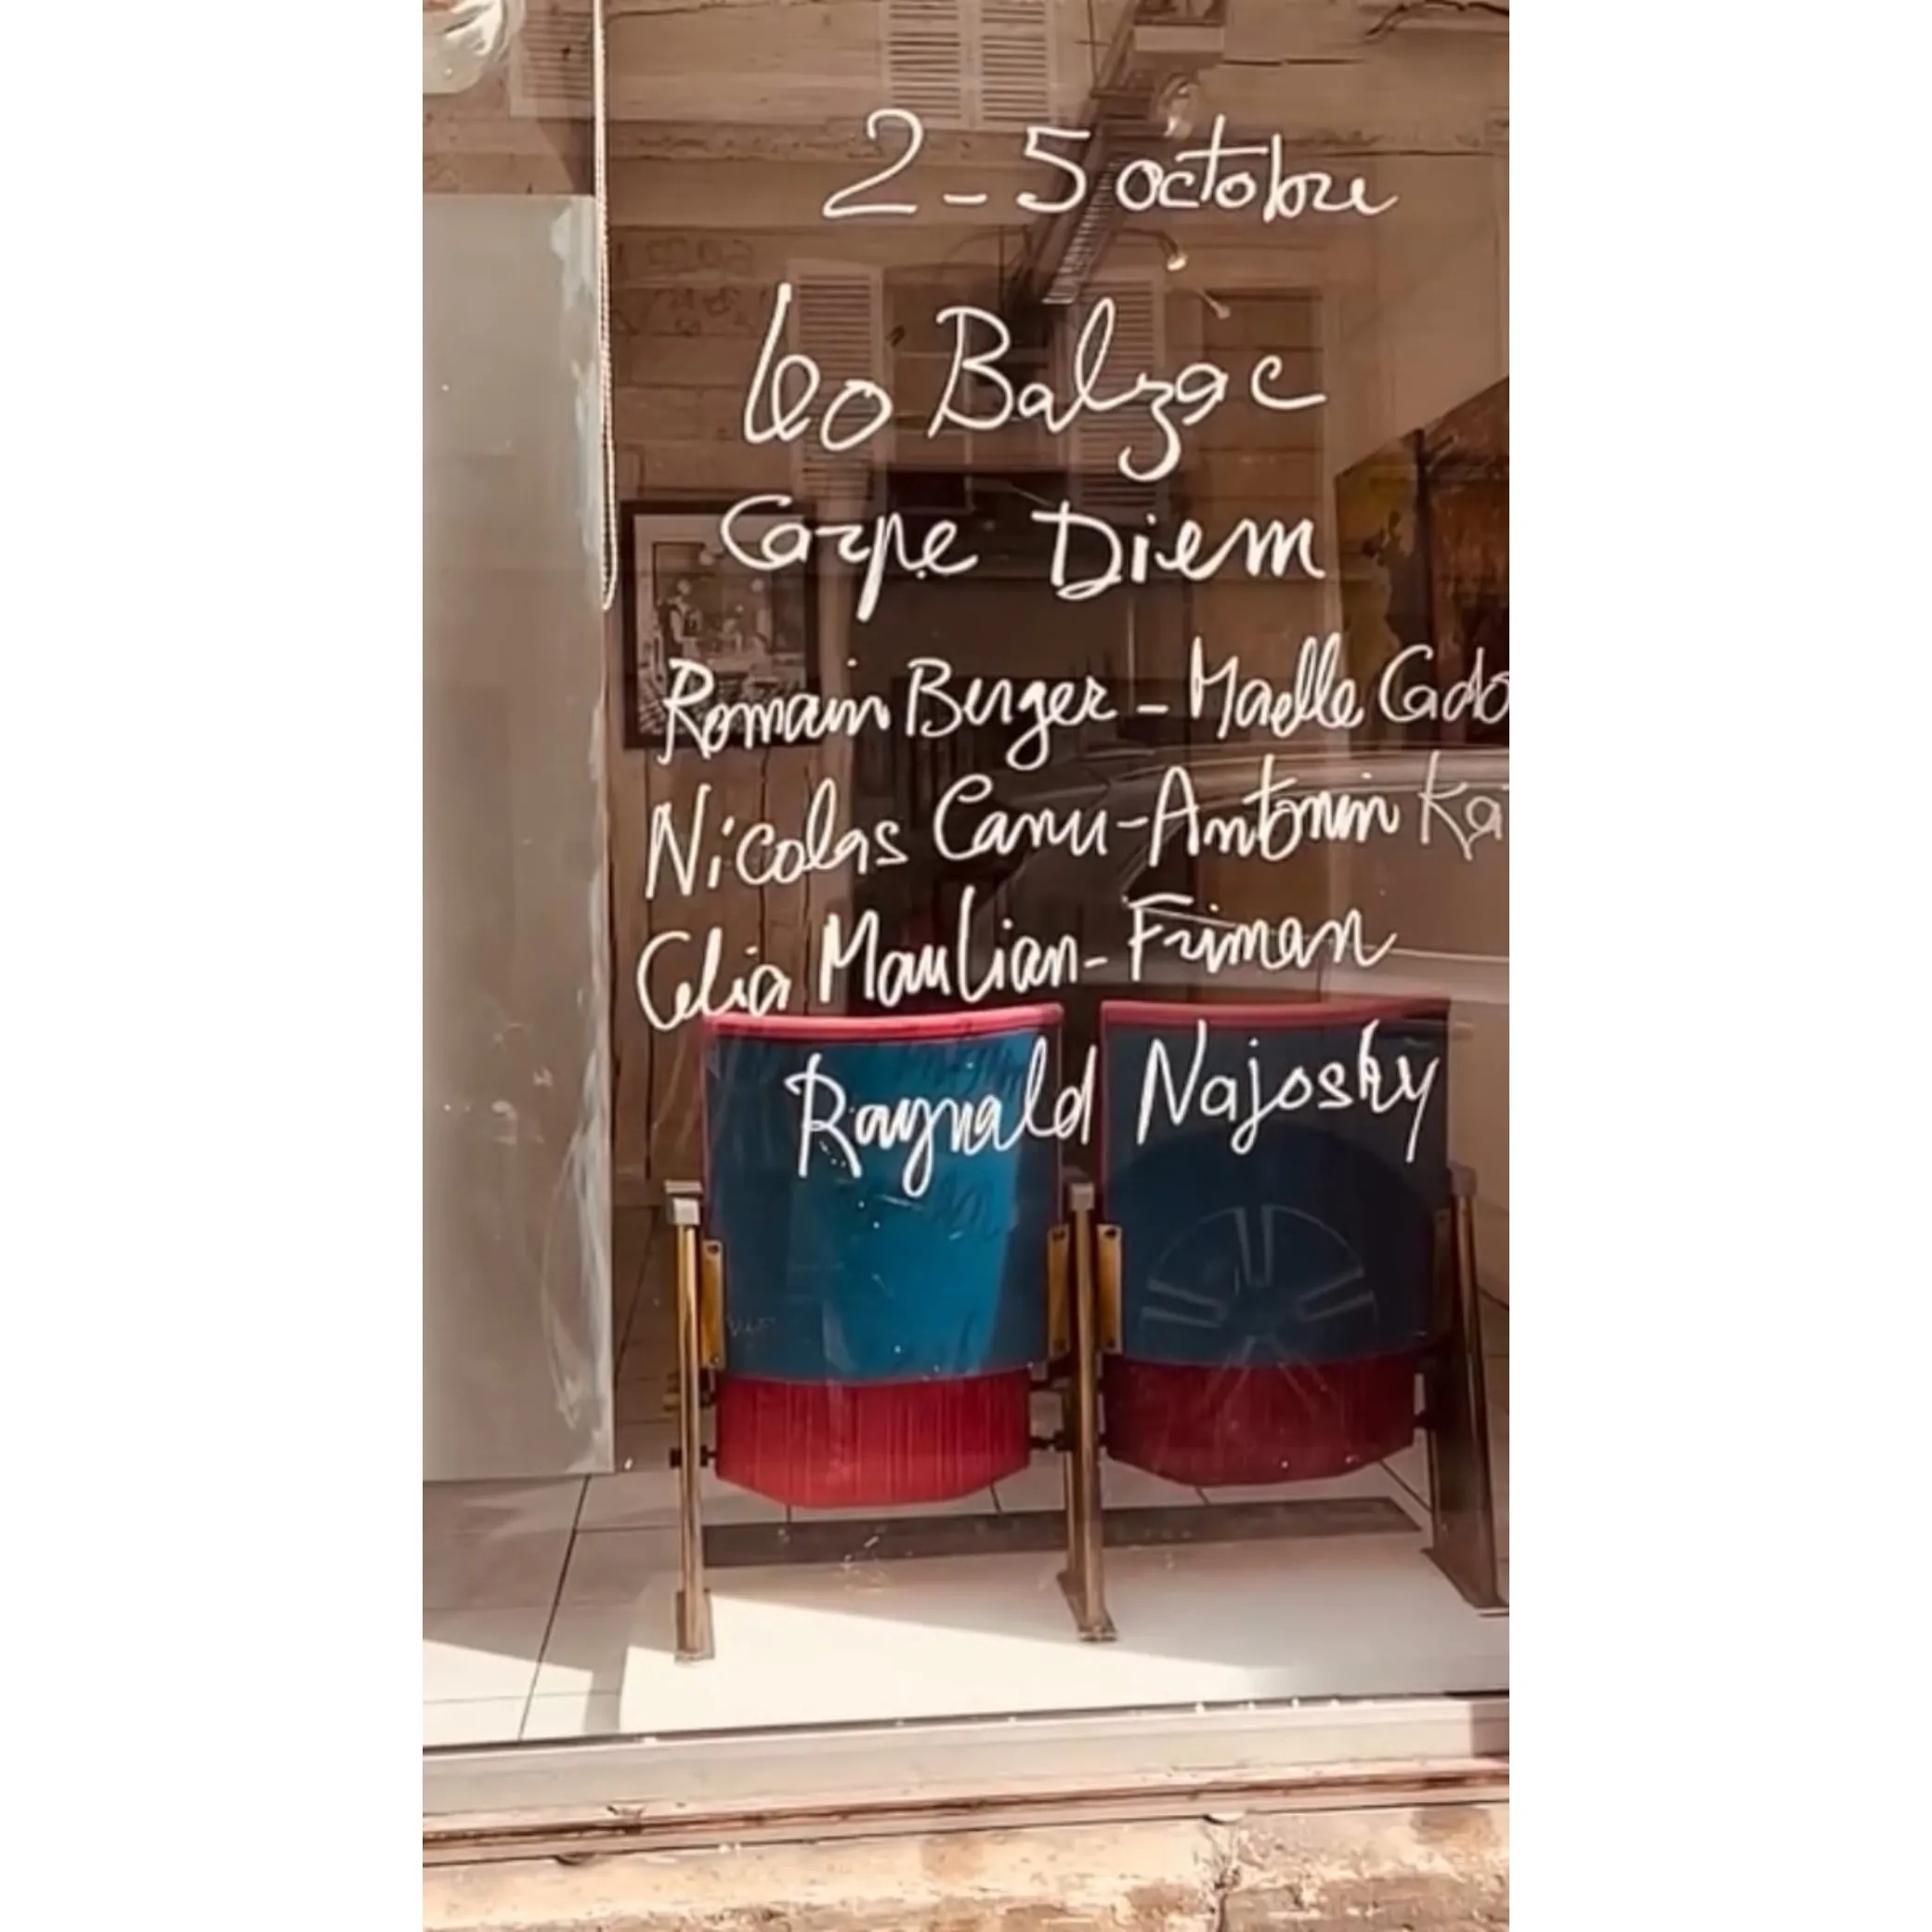 2-5 octobre
Leo Balzac
Carpe Diem
Romain Berger - Maelle Cado
Nicolas Canu - Antonin Ka
Celia Maulian - Friman
Raynald Najosky